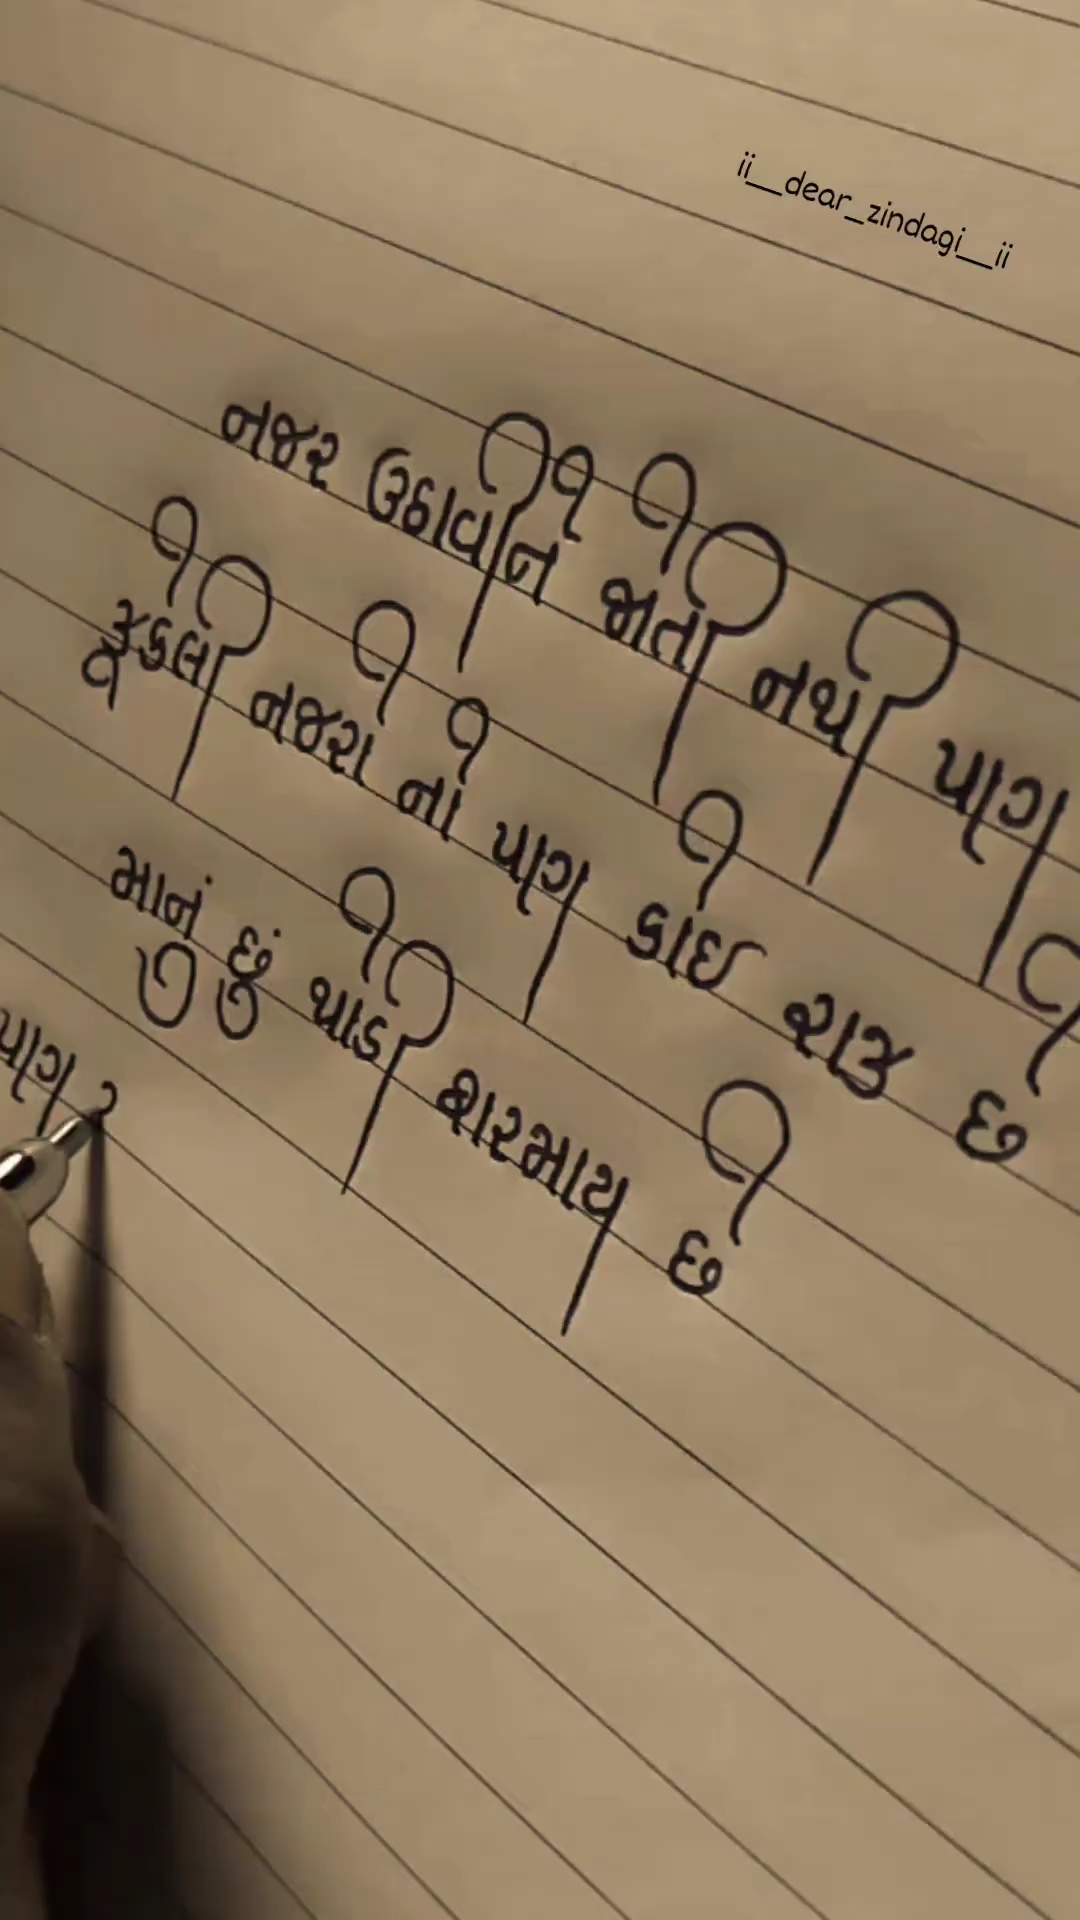 ii__dear_zindagi__ii
નજર ઉઠાવીને જોતી નથી પાગલ
ઝૂકેલી નજરો નો પાગલ કોઈ રાઝ છે
માનું છું થોડી શરમાય છે
પાગલ